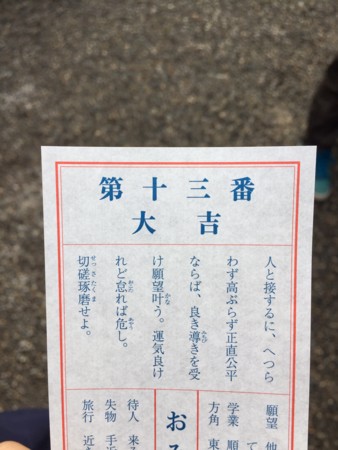 第十三番
大吉
人と接するに、へつら
わず高ぶらず正直公平
ならば、良き導きを受
け願望叶う。運気良け
れど怠れば危し。
切磋琢磨せよ。
願望 他
て
学業 順
方角 東
お
待人 来
失物 手
旅行 近